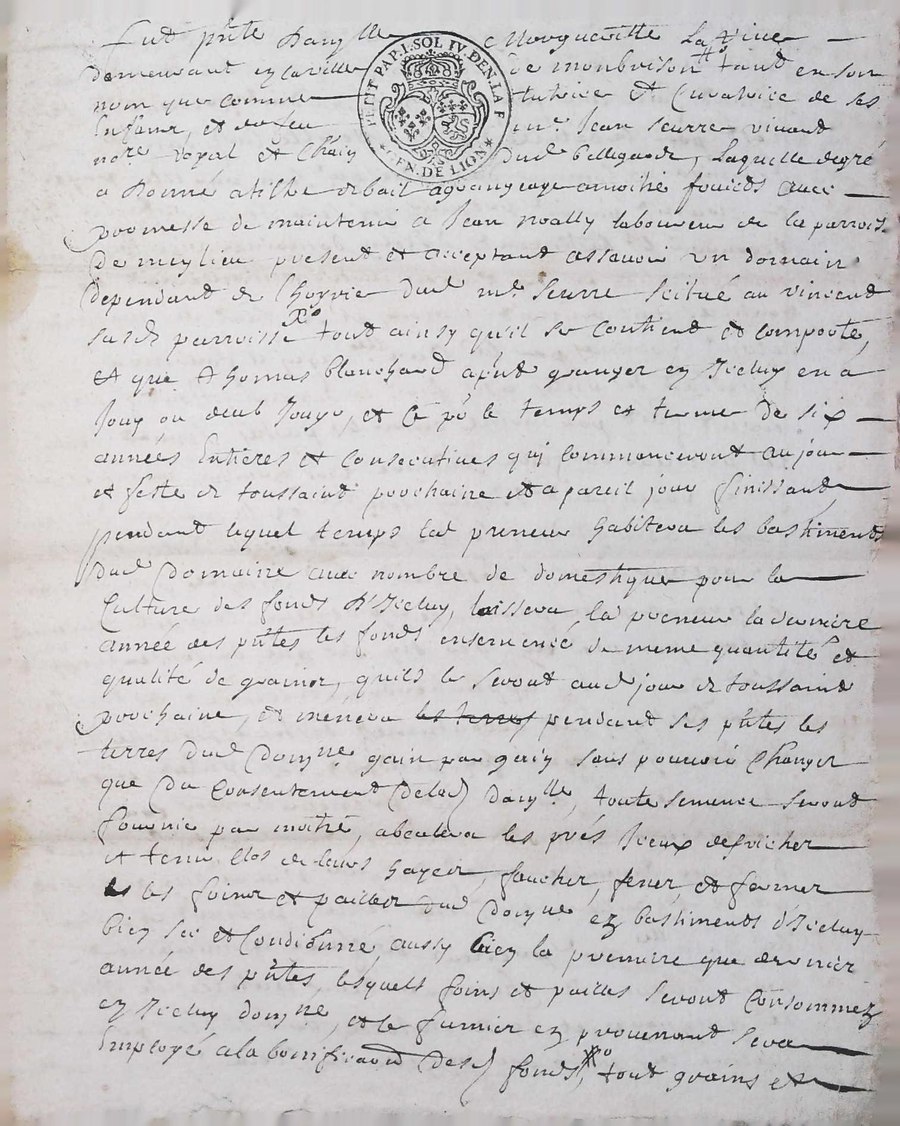 Fut pnte Dam^lle Margueritte La Vive
demeurant en la ville de monbrison tant en son
nom que comme tutrice et Curatrice de ses
Enfans, et de feu m^e. Jean Seurre vivant
no^re royal et Dud bellegarde, Laquelle de gré
a donné a tiltre de bail a grangeage a moitié fruicts avec
promesse de maintenir a Jean laboureur de la parroisse
De meylieu present et acceptant assavoir un domaine
dependant de l'hoyrie dud m^e. Seurre scitué au vincend
susd parroisse tout ainsy qu'il se contient et comporte,
et que Thomas blanchard granger en Jceluy en a
Jouy ou deub Jouyr, et Ce po^r le temps et terme de six
années Entieres et consecutives qui commenceront au jour
et feste de toussaint prochaine et a pareil jour finissant
pendant lequel temps led preneur habitera les bastiments
dud Domaine avec nombre de domestique pour la
Culture des fonds d'Jceluy, laissera led preneur la derniere
année des pntes les fonds ensemencé de meme quantité et
qualité de grains, quils le seront aud jour de toussaint
prochaine, et menera les terres pendant ses pntes les
terres dud Dom^ne gain par gain sans pouvoir Changer
que Du Consentement Delad Dam^lle, toute semence seront
fournie par moitié, abeulera les prés Jceux defricher
et tenir Clos de leurs hayes, faucher, fener, et fermer
les foins et pailles dud Dom^ne ez bastiments d'Jceluy
bien sec et Conditionné, aussy bien la premiere que derniere
année des pntes, lesquels foins et pailles seront Consommez
en Jceluy dom^ne, et le fumier en provenant sera
Employé a la bonification Desd fonds, tout grains et
PETIT PAP. 1. SOL IV. DEN. LA F
GEN. DE LION